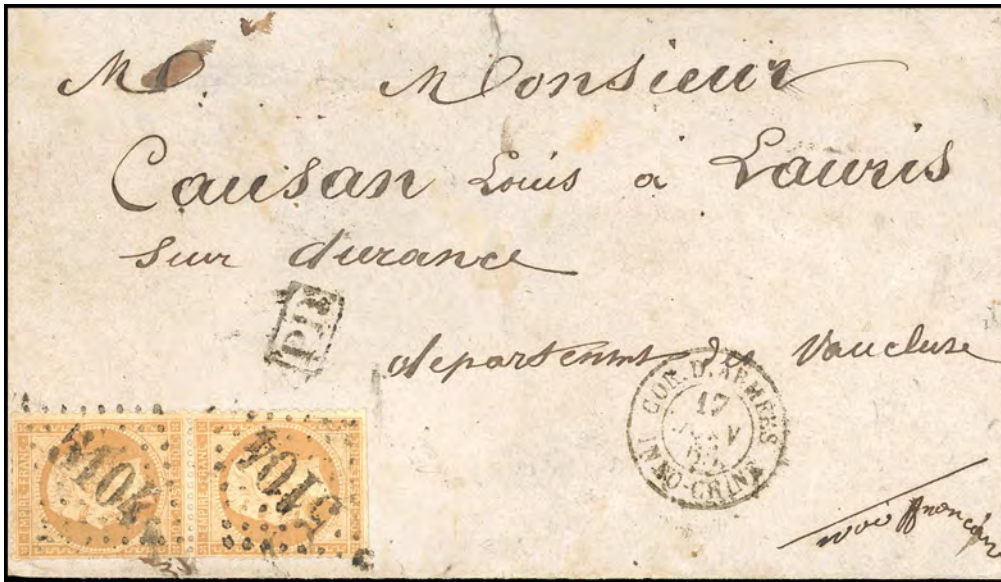 Mo. Monsieur
Causan Louis a Lauris
sur durance
PD
departemt de Vaucluse
COR. D. ARMEES
17
JANV
INNO-CHINE
EMPIRE FRANC
EMPIRE FRANC
5104
5104
voie française